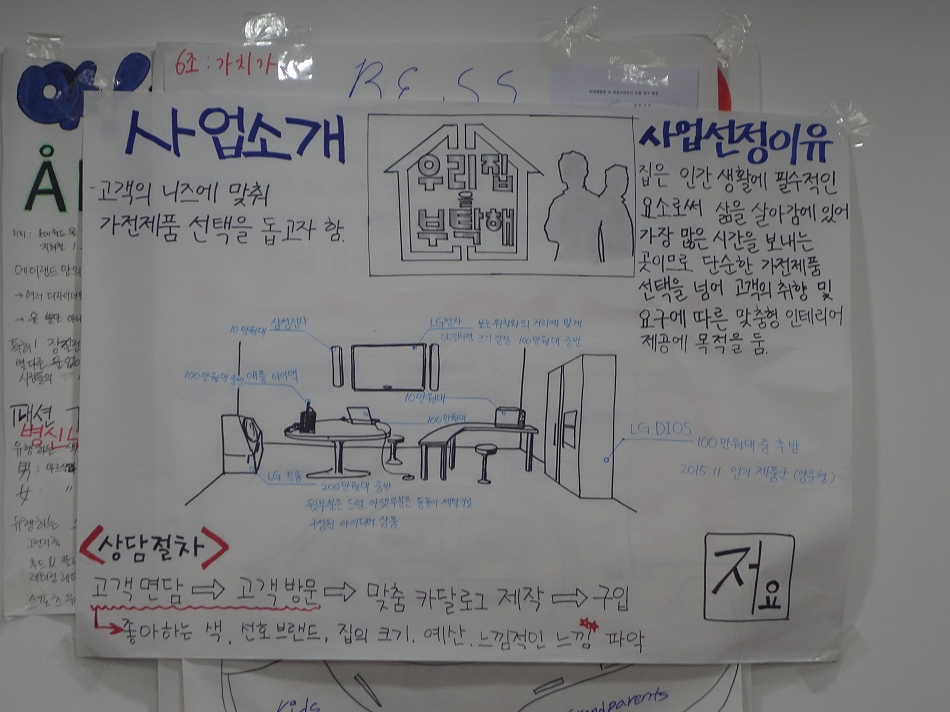 6조 : 가치가
RE SS
사업소개
- 고객의 니즈에 맞춰
가전제품 선택을 돕고자 함.
우리집
을
부탁해
사업선정이유
집은 인간 생활에 필수적인
요소로써 삶을 살아감에 있어
가장 많은 시간을 보내는
곳이므로 단순한 가전제품
선택을 넘어 고객의 취향 및
요구에 따른 맞춤형 인테리어
제공에 목적을 둠.
삼성전자
10만원대
LG전자
100만원대 중반
100만원대 애플 아이맥
10만원대
100만원대
LG DIOS
100만원대 중 후반
2015.11 인기 제품군 (양문형)
LG 트롬
200만원대 중반
윗부분은 드럼, 아랫부분은 통돌이 세탁기로
구성된 아이디어 상품
<상담절차>
고객 면담 ⇨ 고객 방문 ⇨ 맞춤 카달로그 제작 ⇨ 구입
좋아하는 색, 선호브랜드, 집의 크기, 예산, 느낌적인 느낌 파악
저요
패션
kids
grandparents